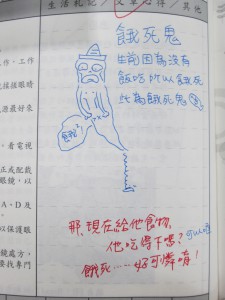 生活札記／文章心得／其他
餓死鬼
生前因為沒有
飯吃所以餓死
此為餓死鬼
餓~
那,現在給他食物,
他吃得下嗎?
可以吧
餓死……好可憐唷!
作、工作
接接眼睛
源最好來
，看電視
正或配戴
眼鏡，以
A、D及
以保護眼
鏡處方，
要找專門